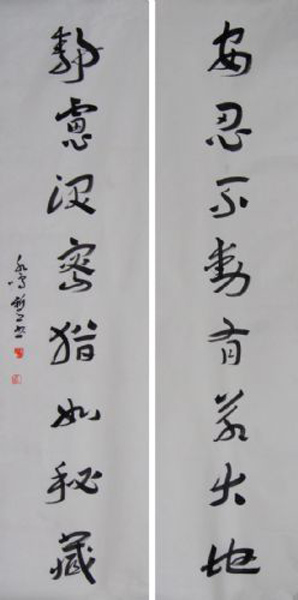 安忍不動有若大地
靜慮深密猶如秘藏